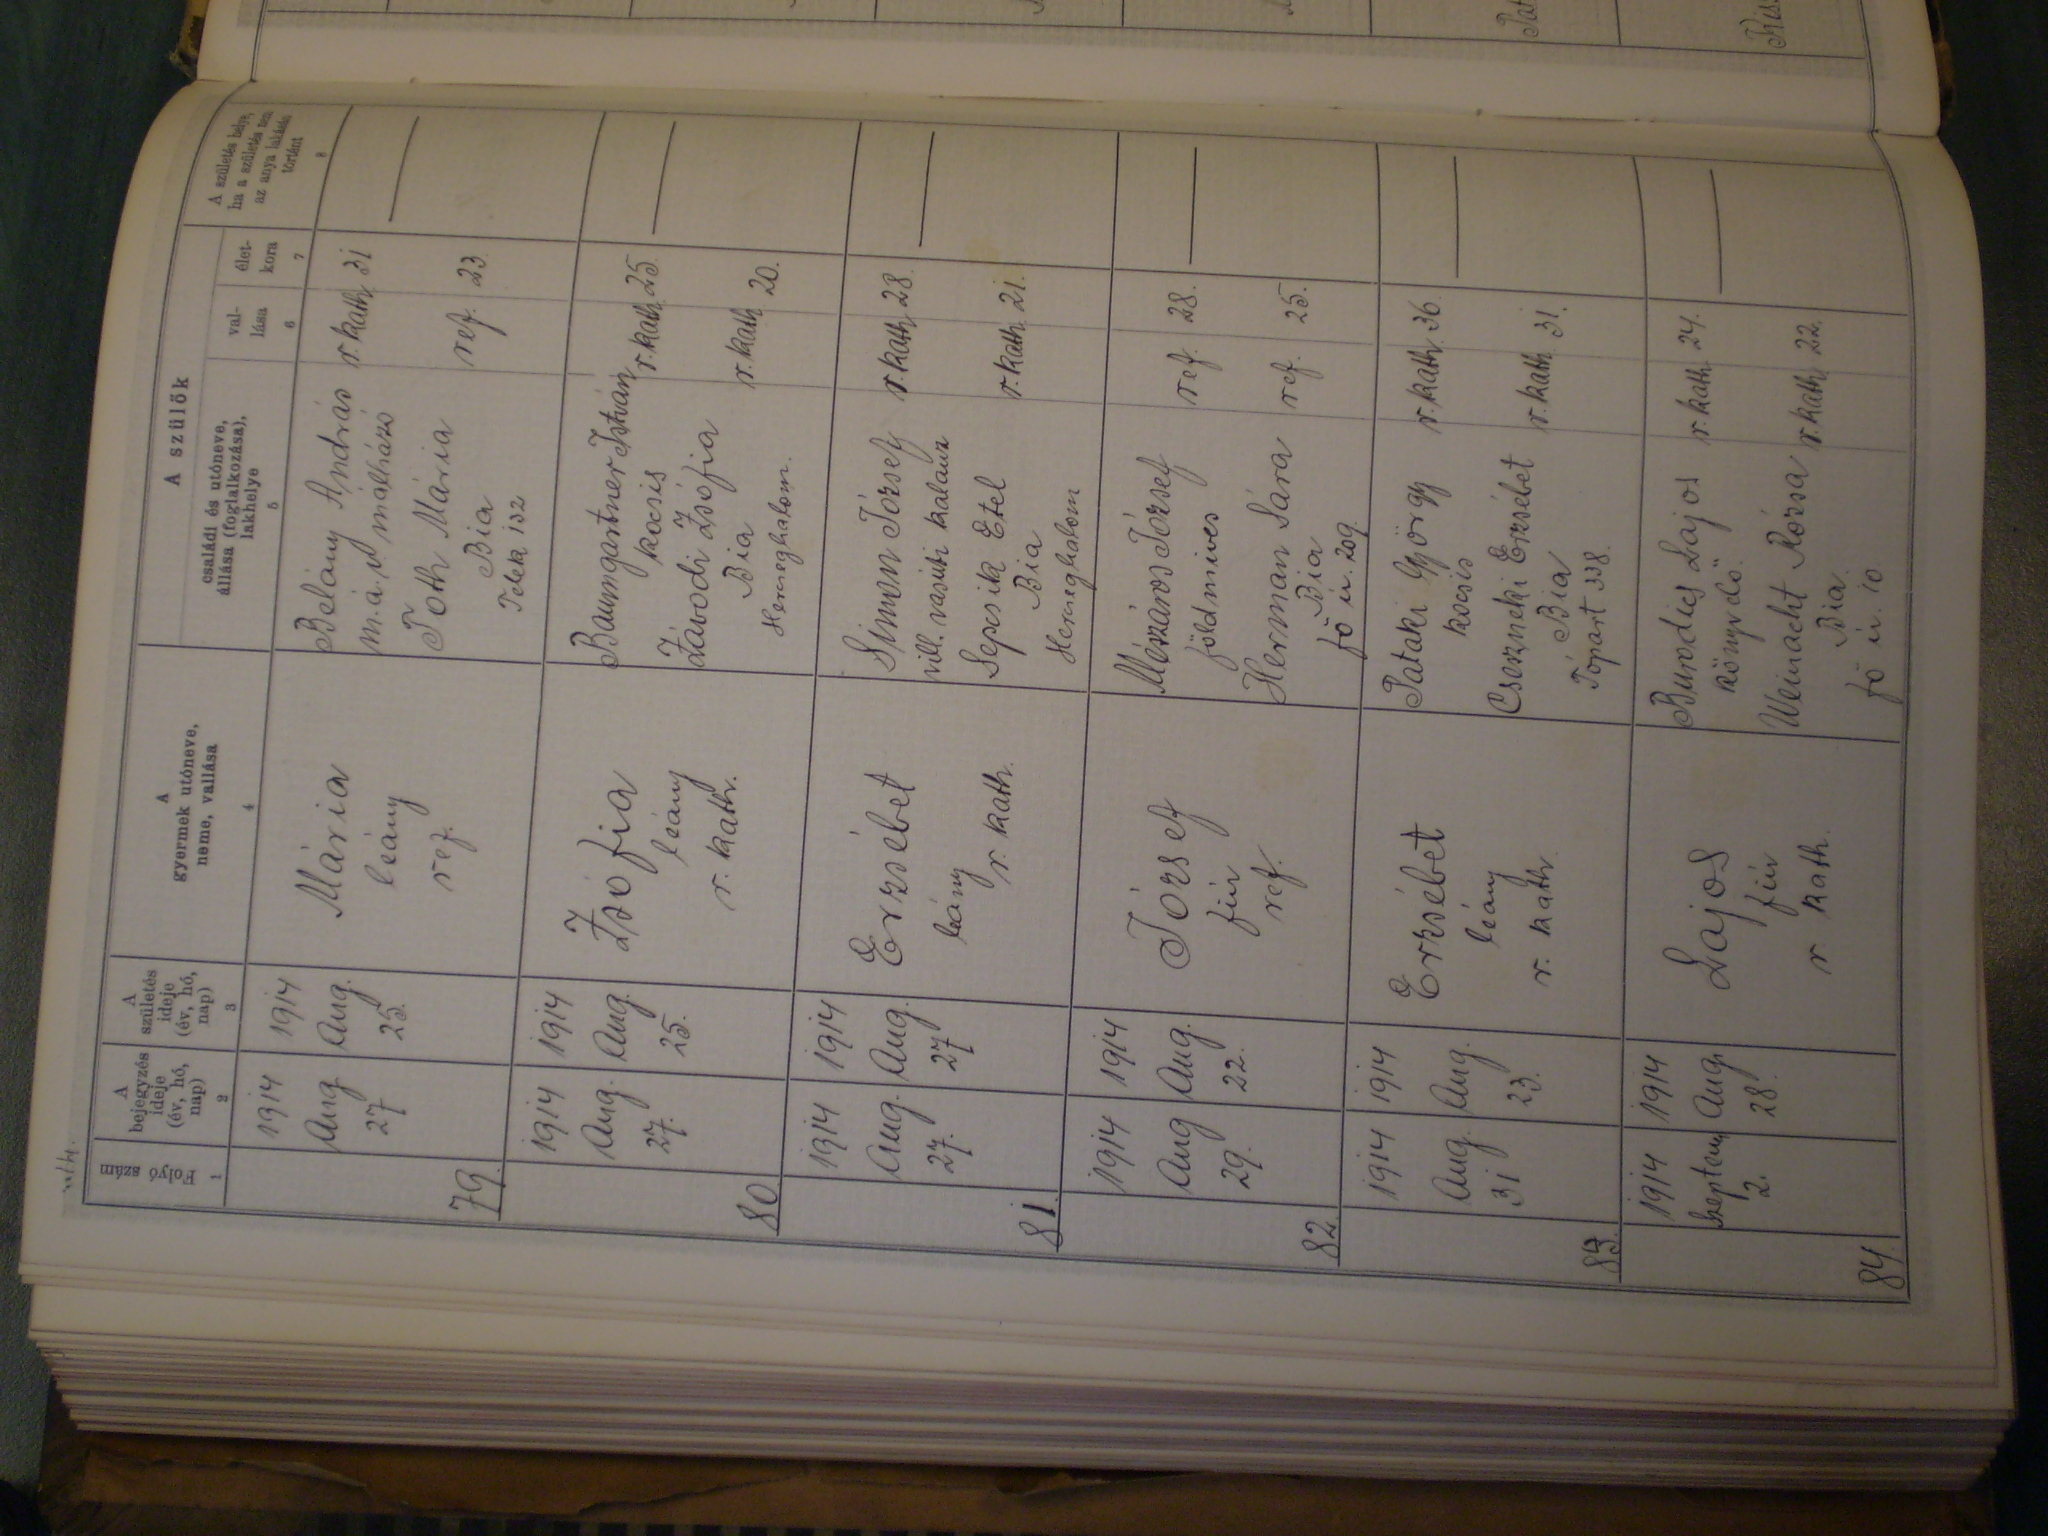 A szülők
Folyó szám
A bejegyzés ideje (év, hó, nap)
A születés ideje (év, hó, nap)
A gyermek utóneve, neme, vallása
családi és utóneve, állása (foglalkozása), lakhelye
val-lása
élet-kora
A születés helye, ha a születés nem az anya lakásán történt
1 2 3 4 5 6 7 8
79.
1914
Aug
27
1914
Aug.
25.
Mária
leány
ref.
Belány András r. kath. 31
m. á. v. málházó
Tóth Mária ref. 23
Bia
Telek 132
80.
1914
Aug.
27.
1914
Aug.
25.
Zsófia
leány
r. kath.
Baumgartner István r. kath. 25.
kocsis
Závodi Zsófia r. kath. 20.
Bia
Herceghalom.
81.
1914
Aug.
27.
1914
Aug.
27
Erzsébet
leány
r. kath.
Simon József r. kath. 28.
vill. vasúti kalauz
Sepsik Etel r. kath. 21.
Bia
Herceghalom
82.
1914
Aug
29.
1914
Aug.
22.
József
fiú
ref.
Mészáros József ref. 28.
földmives
Herman Sára ref. 25.
Bia
fő út. 209.
83.
1914
Aug.
31
1914
Aug.
23.
Erzsébet
leány
r. kath.
Pataki György r. kath. 36.
kocsis
Cseszneki Erzsébet r. kath. 31.
Bia
Tópart 338.
84.
1914
Szeptem.
2.
1914
Aug.
28.
Lajos
fiú
r. kath.
Lajos r. kath. 24.
Weinacht Rózsa r. kath. 22.
Bia.
fő út. 10